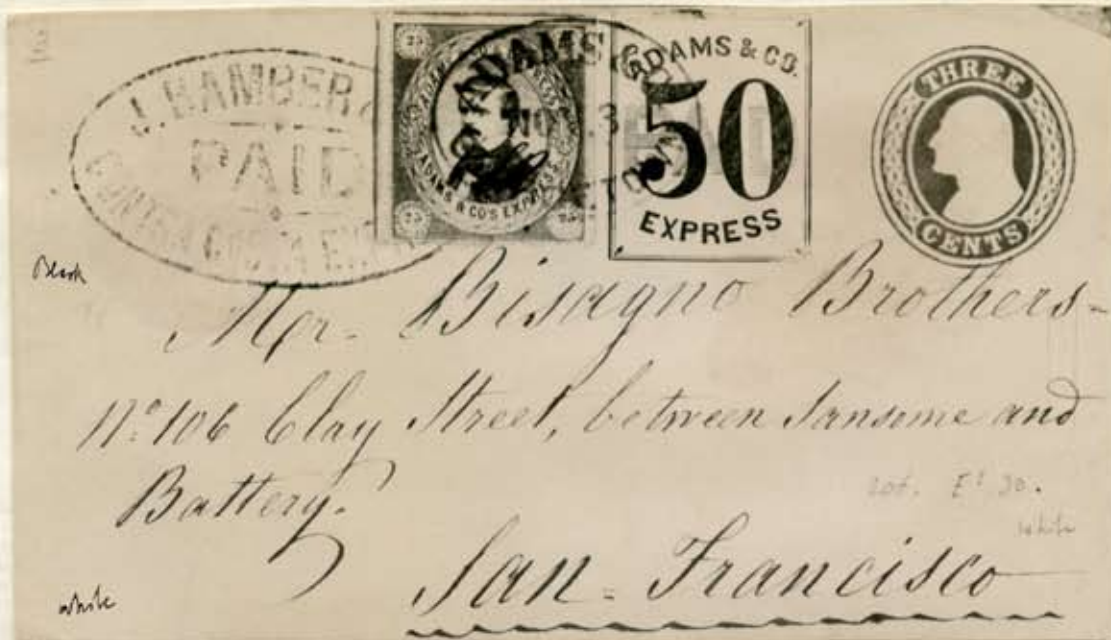 J. BAMBER
PAID
CONTRA COSTA EX
25
25
25
25
ADAMS & CO'S EXPRESS
ADAMS & CO
ADAMS & CO.
50
EXPRESS
THREE
CENTS
Black
Mr. Bisagno Brothers-
No. 106 Clay Street, between Sansome and
Battery.
San. Francisco
white
white